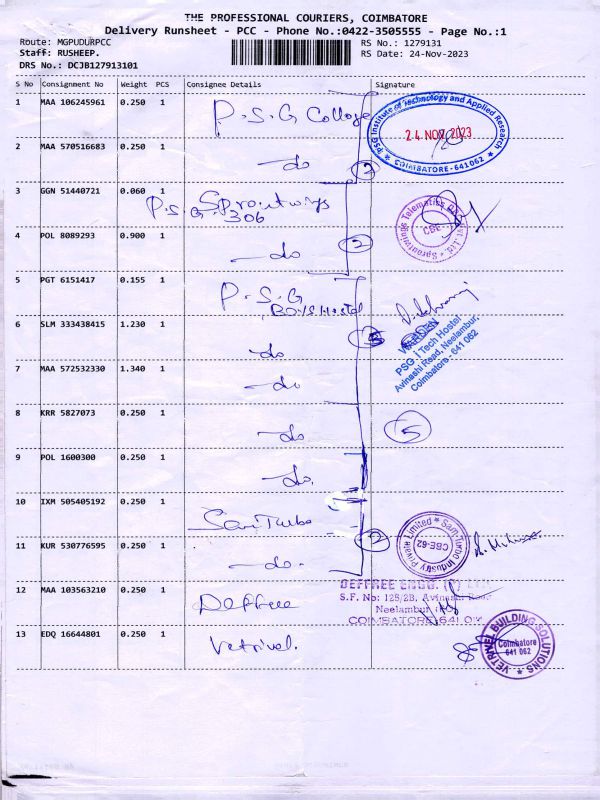 THE PROFESSIONAL COURIERS, COIMBATORE
Delivery Runsheet - PCC - Phone No.:0422-3505555 - Page No.:1
Route: MGPUDURPCC RS No.: 1279131
Staff: RUSHEEP. RS Date: 24-Nov-2023
DRS No.: DCJB127913101
S No Consignment No Weight PCS Consignee Details Signature
1 MAA 106245961 0.250 1 P.S.G College
PSG Institute of Technology and Applied Research
24 NOV 2023
COIMBATORE - 641 062
2 MAA 570516683 0.250 1 do 2
3 GGN 51440721 0.060 1 P.S.G. Sproutwings
306
Sproutwings Telematics Pvt. Ltd.
CBE
4 POL 8089293 0.900 1 do 2
5 PGT 6151417 0.155 1 P.S.G
BOYS Hostel
6 SLM 333438415 1.230 1 do
WARDEN
PSG iTech Hostel
Avinashi Road, Neelambur,
Coimbatore - 641 062
7 MAA 572532330 1.340 1 do
8 KRR 5827073 0.250 1 do 5
9 POL 1600300 0.250 1 do.
10 IXM 505405192 0.250 1 Sam Turbo
Sam-Turbo Industry Private Limited
CBE-62
11 KUR 530776595 0.250 1 do. 2
12 MAA 103563210 0.250 1 Deffree
DEFFREE ENGG. (P) LTD
S.F. No: 128/2B, Avinashi Road
Neelambur (PO)
COIMBATORE 641
13 EDQ 16644801 0.250 1 Vetrivel.
VETRIVEL BUILDING SOLUTIONS
Coimbatore
641 062